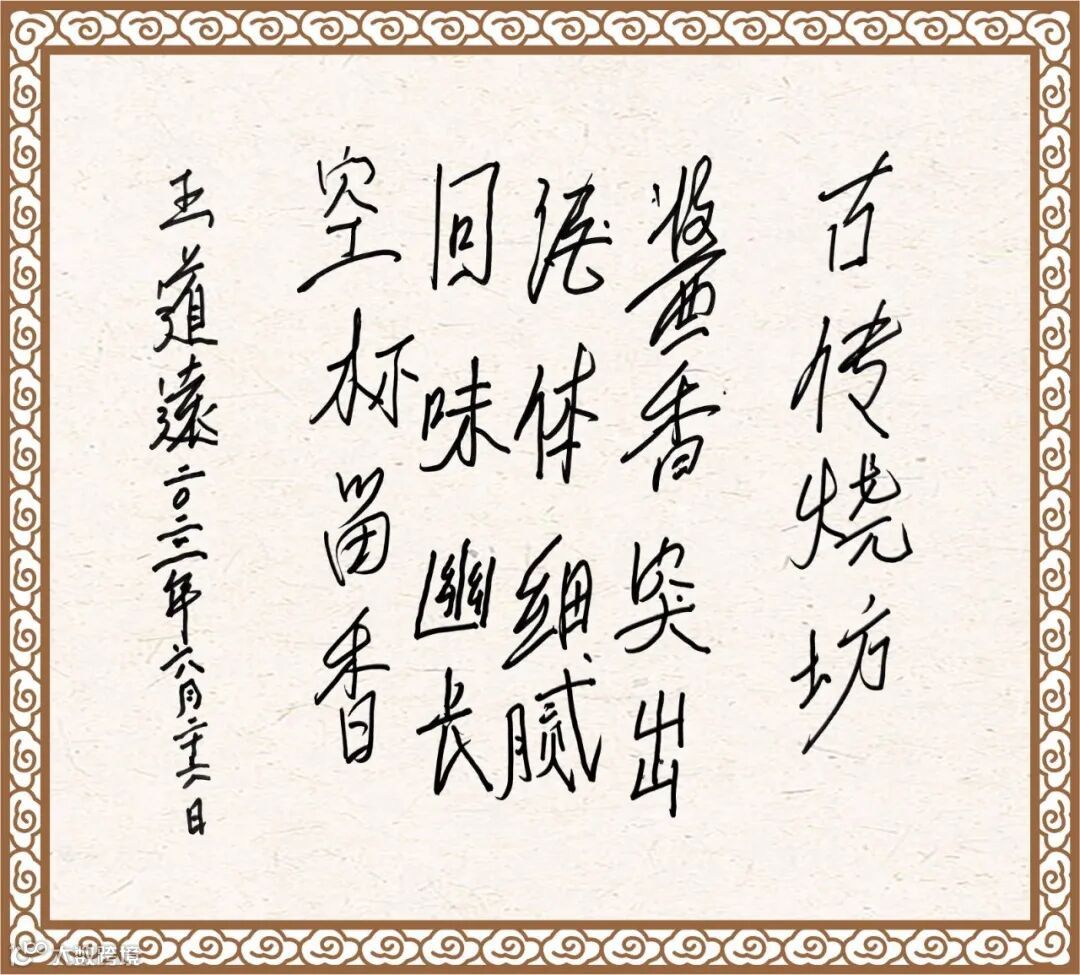 古传烧坊
酱香突出
酒体细腻
回味幽长
空杯留香
王道远二〇二二年六月二十六日
大数跨境